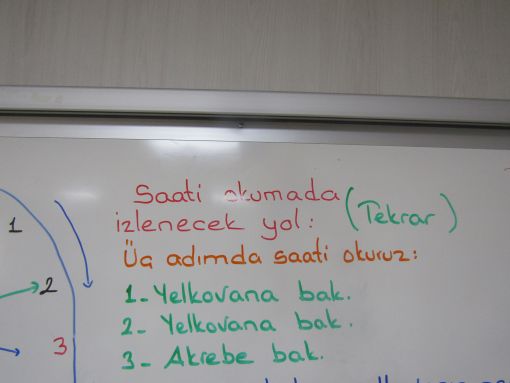 Saati okumada
izlenecek yol: (Tekrar)
Üç adımda saati okuruz:
1- Yelkovana bak.
2- Yelkovana bak.
3- Akrebe bak.
1
2
3